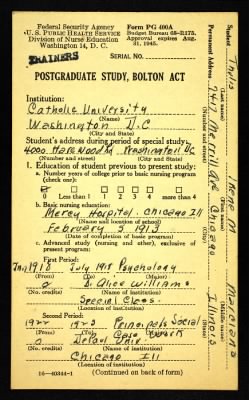 Federal Security Agency
U. S. PUBLIC HEALTH SERVICE
Division of Nurse Education
Washington 14, D. C.
Form PG 400A
Budget Bureau 68-R175.
Approval expires Aug. 31, 1945.
TRAINERS
SERIAL NO.
POSTGRADUATE STUDY, BOLTON ACT
Institution:
Catholic University
(Name)
Washington D.C
(City and State)
Student's address during period of special study:
4000 Harewood Rd Washington DC
(Number and street) (City and State)
1. Education of student previous to present study:
a. Number years of college prior to basic nursing program
(check one):
0 Less than 1 1 2 3 4 4 more
b. Basic nursing education:
Mercy Hospital. Chicago Ill
(Name) (City and State)
February 5 1913
(Date of completion of basic education)
c. Advanced study (nursing and other), exclusive of
present program:
First Period:
Jan 1918 July 1918 Psychology
(From) (To) (Program)
0 S. Alice Williams
(No. credits) (Name of institution)
Special Class.
(City and State)
Second Period:
1922 1923 Principals Social
(From) (To) (Program)
0 DePaul Univ. Case Work
(No. credits) (Name of institution)
Chicago Ill
(City and State)
16-40344-1 (Continued on back of form)
Student
Irene M
Permanent Address
7417 Merrill Ave Chicago Illinois
(Number and street)